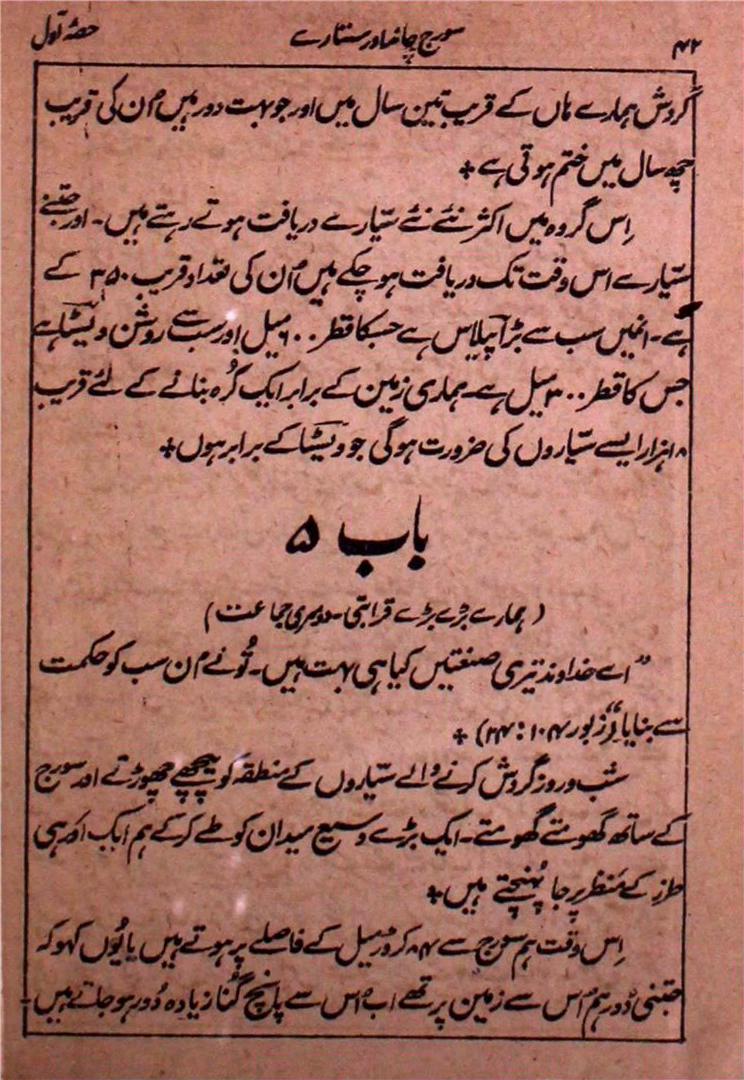 ۴۲ سورج چاند اور ستارے حصہ اول
گردش ہمارے ہاں کے قریب تین سال میں اور جو بہت دور ہیں اُن کی قریب
چھ سال میں ختم ہوتی ہے +
اِس گروہ میں اکثر نئے نئے سیّارے دریافت ہوتے رہتے ہیں۔ اور جتنے
سیّارے اس وقت تک دریافت ہو چکے ہیں اُن کی تعداد قریب ۳۵۰ کے
ہے۔ انمیں سب سے بڑا پیلاس ہے جسکا قطر ۶۰۰ میل اور سب سے روشن ویشٹا ہے
جس کا قطر ۳۰۰ میل ہے۔ ہماری زمین کے برابر ایک کُرہ بنانے کے لئے قریب
۸ ہزار ایسے سیّاروں کی ضرورت ہوگی جو ویشٹا کے برابر ہوں +
باب ۵
(ہمارے بڑے بڑے قرابتی۔ دوسری جماعت)
”اے خداوند تیری صنعتیں کیا ہی بہت ہیں۔ تُونے اُن سب کو حکمت
سے بنایا“ (زبور ۱۰۴: ۲۴) +
شب و روز گردش کرنے والے سیّاروں کے منطقہ کو پیچھے چھوڑتے اور سورج
کے ساتھ گھومتے گھومتے۔ ایک بڑے وسیع میدان کو طے کرکے ہم ایک اَور ہی
طرز کے منظر پر جا پہنچتے ہیں +
اِس وقت ہم سورج سے ۴۸ کروڑ میل کے فاصلے پر ہوتے ہیں یا یُوں کہو کہ
جتنی دُور ہم اُس سے زمین پر تھے اب اُس سے پانچ گُنا زیادہ دُور ہو جاتے ہیں۔